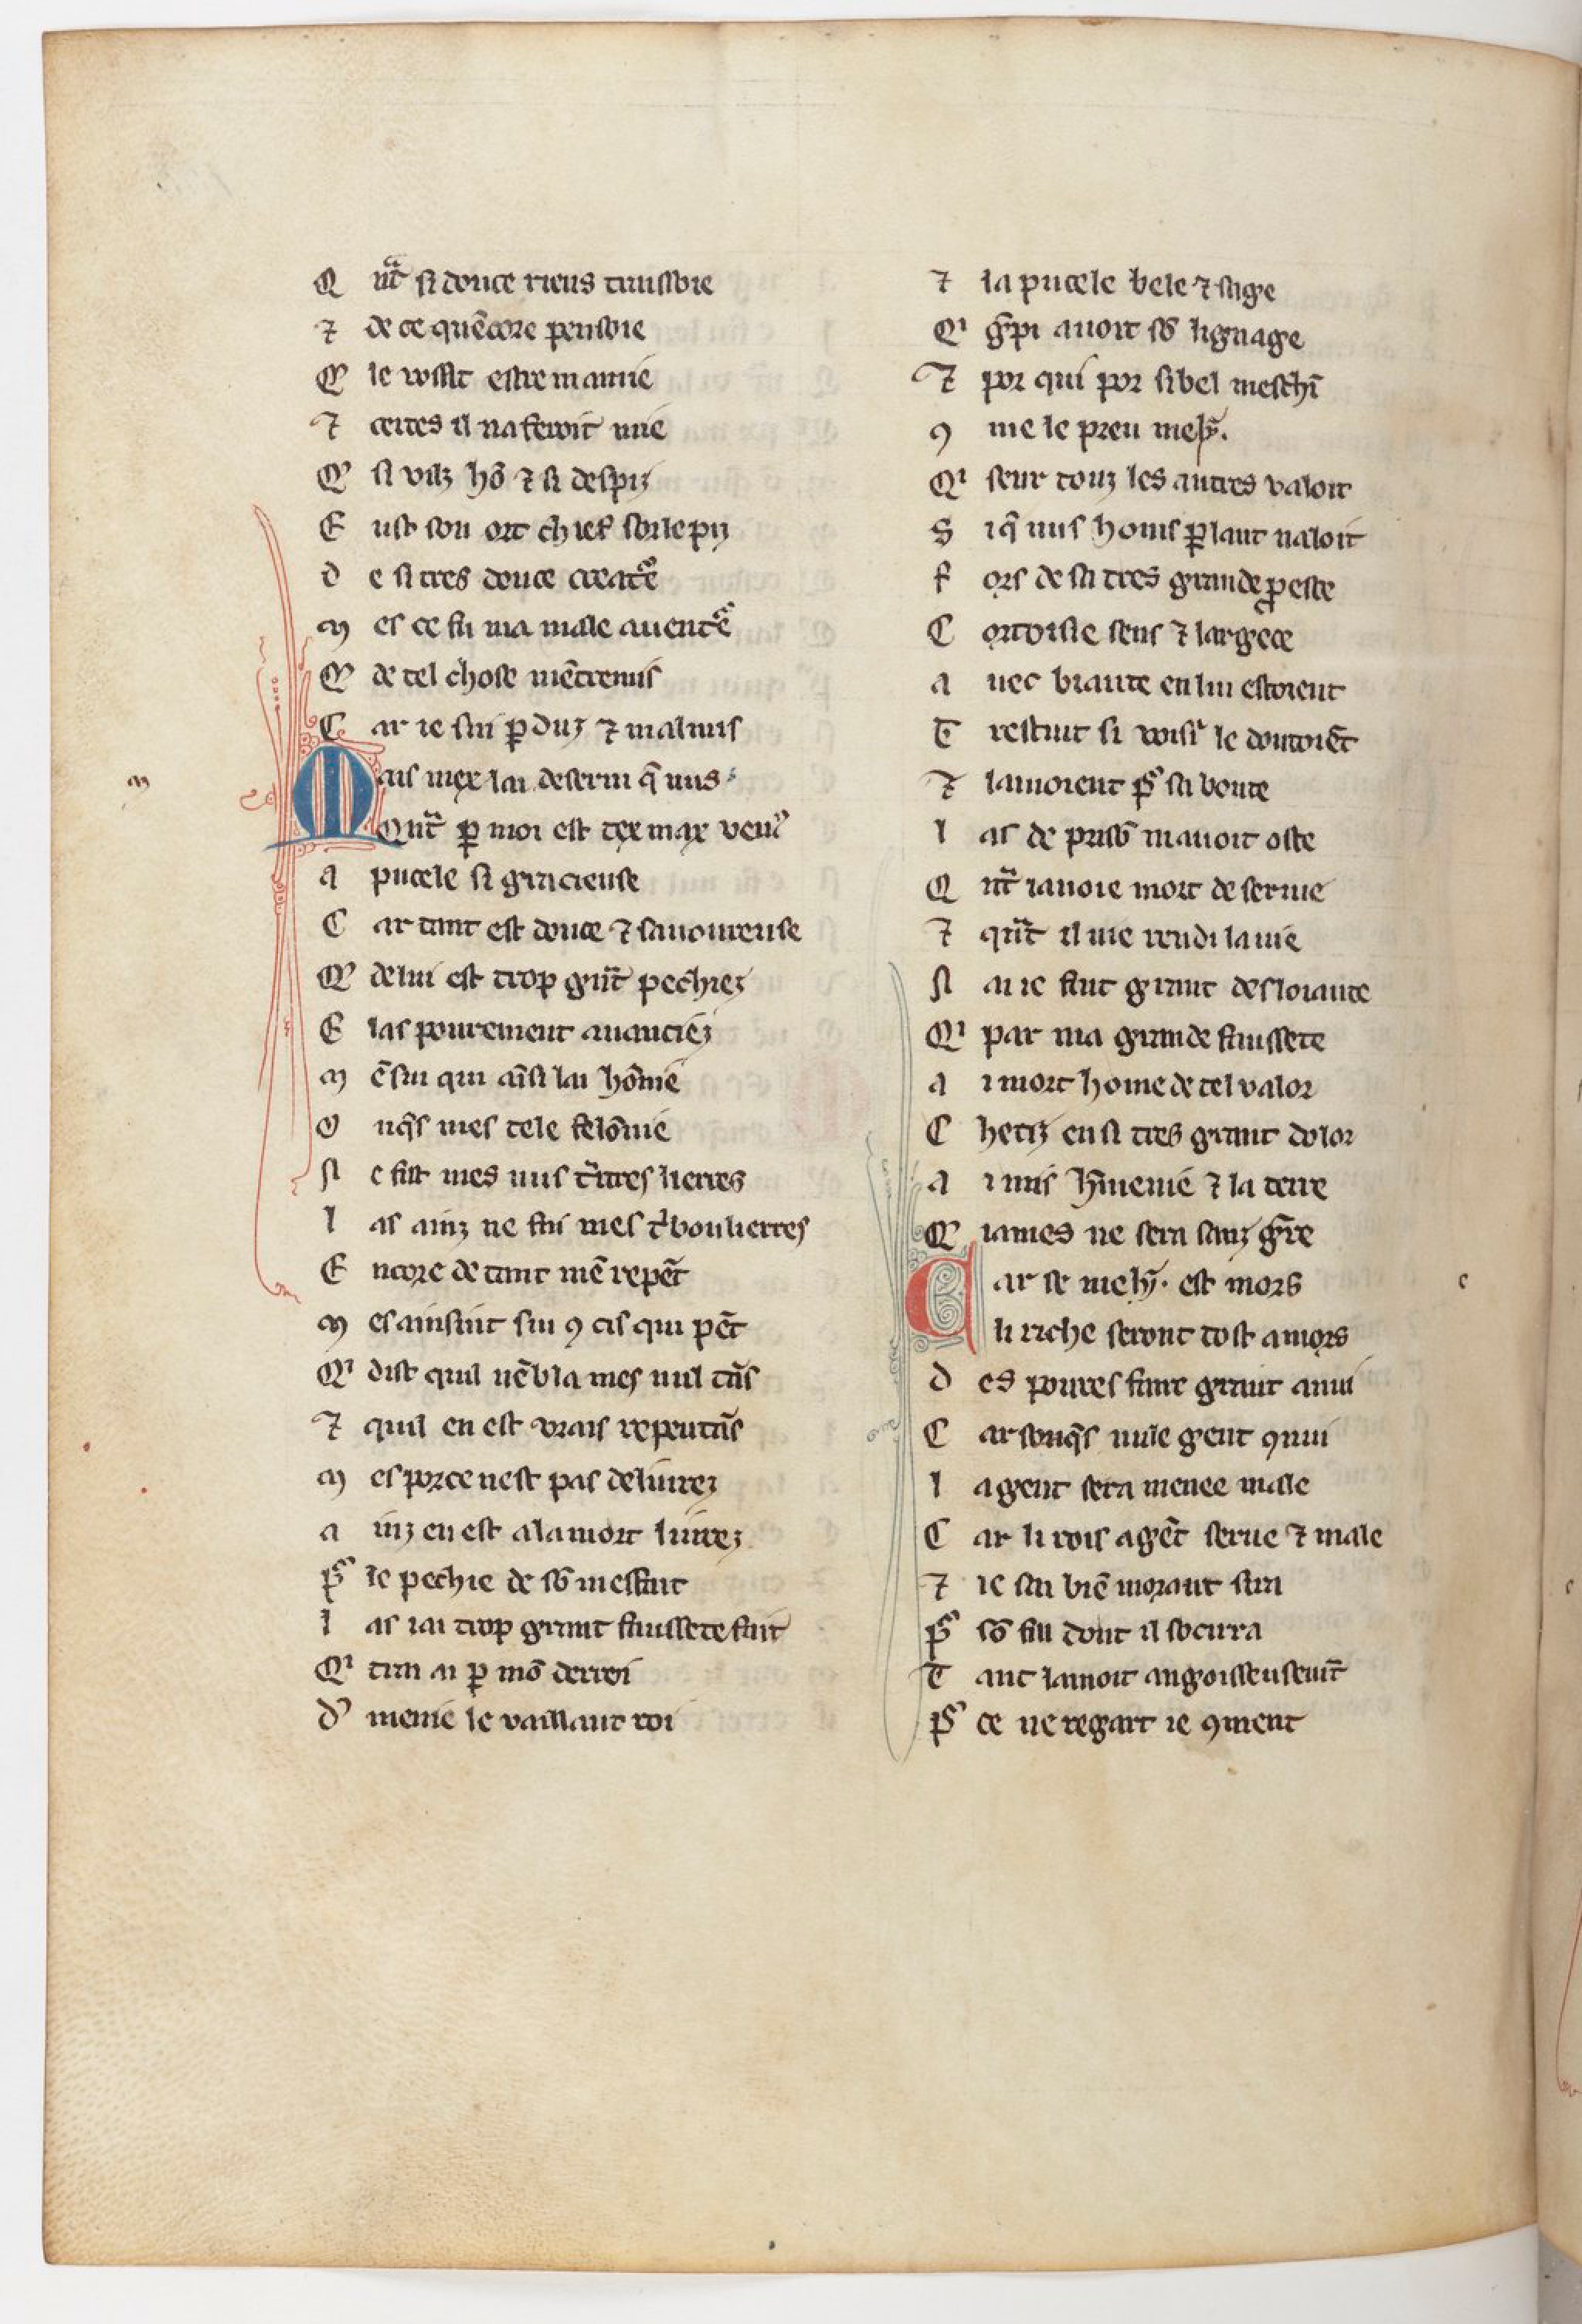 Q nᵃt si douce riens traissoie
⁊ de ce quẽcore pensoie
Qͤ le vosist estre mamie
⁊ certes il naferoit mie
Qͤ si vilz hõ ⁊ si despiz
E ust son ort chief sor le piz
d e si tres douce creatᵉ
m es ce fu ma male auentᵉ
Qͤ de tel chose mẽtremis
C ar ie sui ꝑduz ⁊ malmis
m
Mais niex lai deserui q̃ nus
Qñt ꝑ moi est tex max venꝰ
a pucele si gracieuse
C ar tant est douce ⁊ sauoureuse
Qͤ de lui est trop grãt pechiez
E las pourement auanciez
m ẽ sui qui aĩsi lai hõnie
O nq̃s mes tele felõnie
N e fist mes nus tͥtres lierres
l as ainz ne fui mes tͥboulierres
E ncore de tant mẽ repẽt
m es ainsint sui ꝯ cis qui pẽt
Qͥ dist quil nẽbla mes nul tãs
⁊ quil en est vrais repentãs
m es por ce nest pas deliurez
a inz en est a la mort liurez
p̱ᵒ le pechie de sõ mesfait
l as iai trop grant faussete fait
Qͥ trai ai ꝑ mõ derroi
dͤ menie le vaillant roi
⁊ la pucele bele ⁊ sage
Qͥ g̃pi auoit sõ lignage
⁊ por qui por si bel meschĩ
ꝯ me le preu meħ.
Qͥ seur touz les autres valoit
S iq̃ nus homs ꝑlant naloit
f ors de sa tres grande ꝓesce
C ortoisie sens ⁊ largece
a uec biaute en lui estoient
T restuit si voisĩ le doutoiẽt
⁊ lamoient pᵒ sa bonte
l as de prisõ mauoit oste
Q nᵃt iauoie mort deseruie
⁊ qᵃnt il me rendi la uie
N ai ie fait grant desloiaute
Qͥ par ma grande faussete
a i mort home de tel valor
C hetiz en si tres grant dolor
a i mis hᵉmenie ⁊ la terre
Qͤ iames ne sera sanz gᵉre
Car se meħ. est mors
c
li riche seront tost amors
d es poures faire grant anui
C ar sonq̃s nule gent ꝯnui
l a gent sera menee male
C ar li rois a gẽt serue ⁊ male
⁊ ie sai biẽ morant sira
pᵒ sõ fill dont il socirra
T ant lamoit angoisseusemẽt
pᵒ ce ne regart ie ꝯment